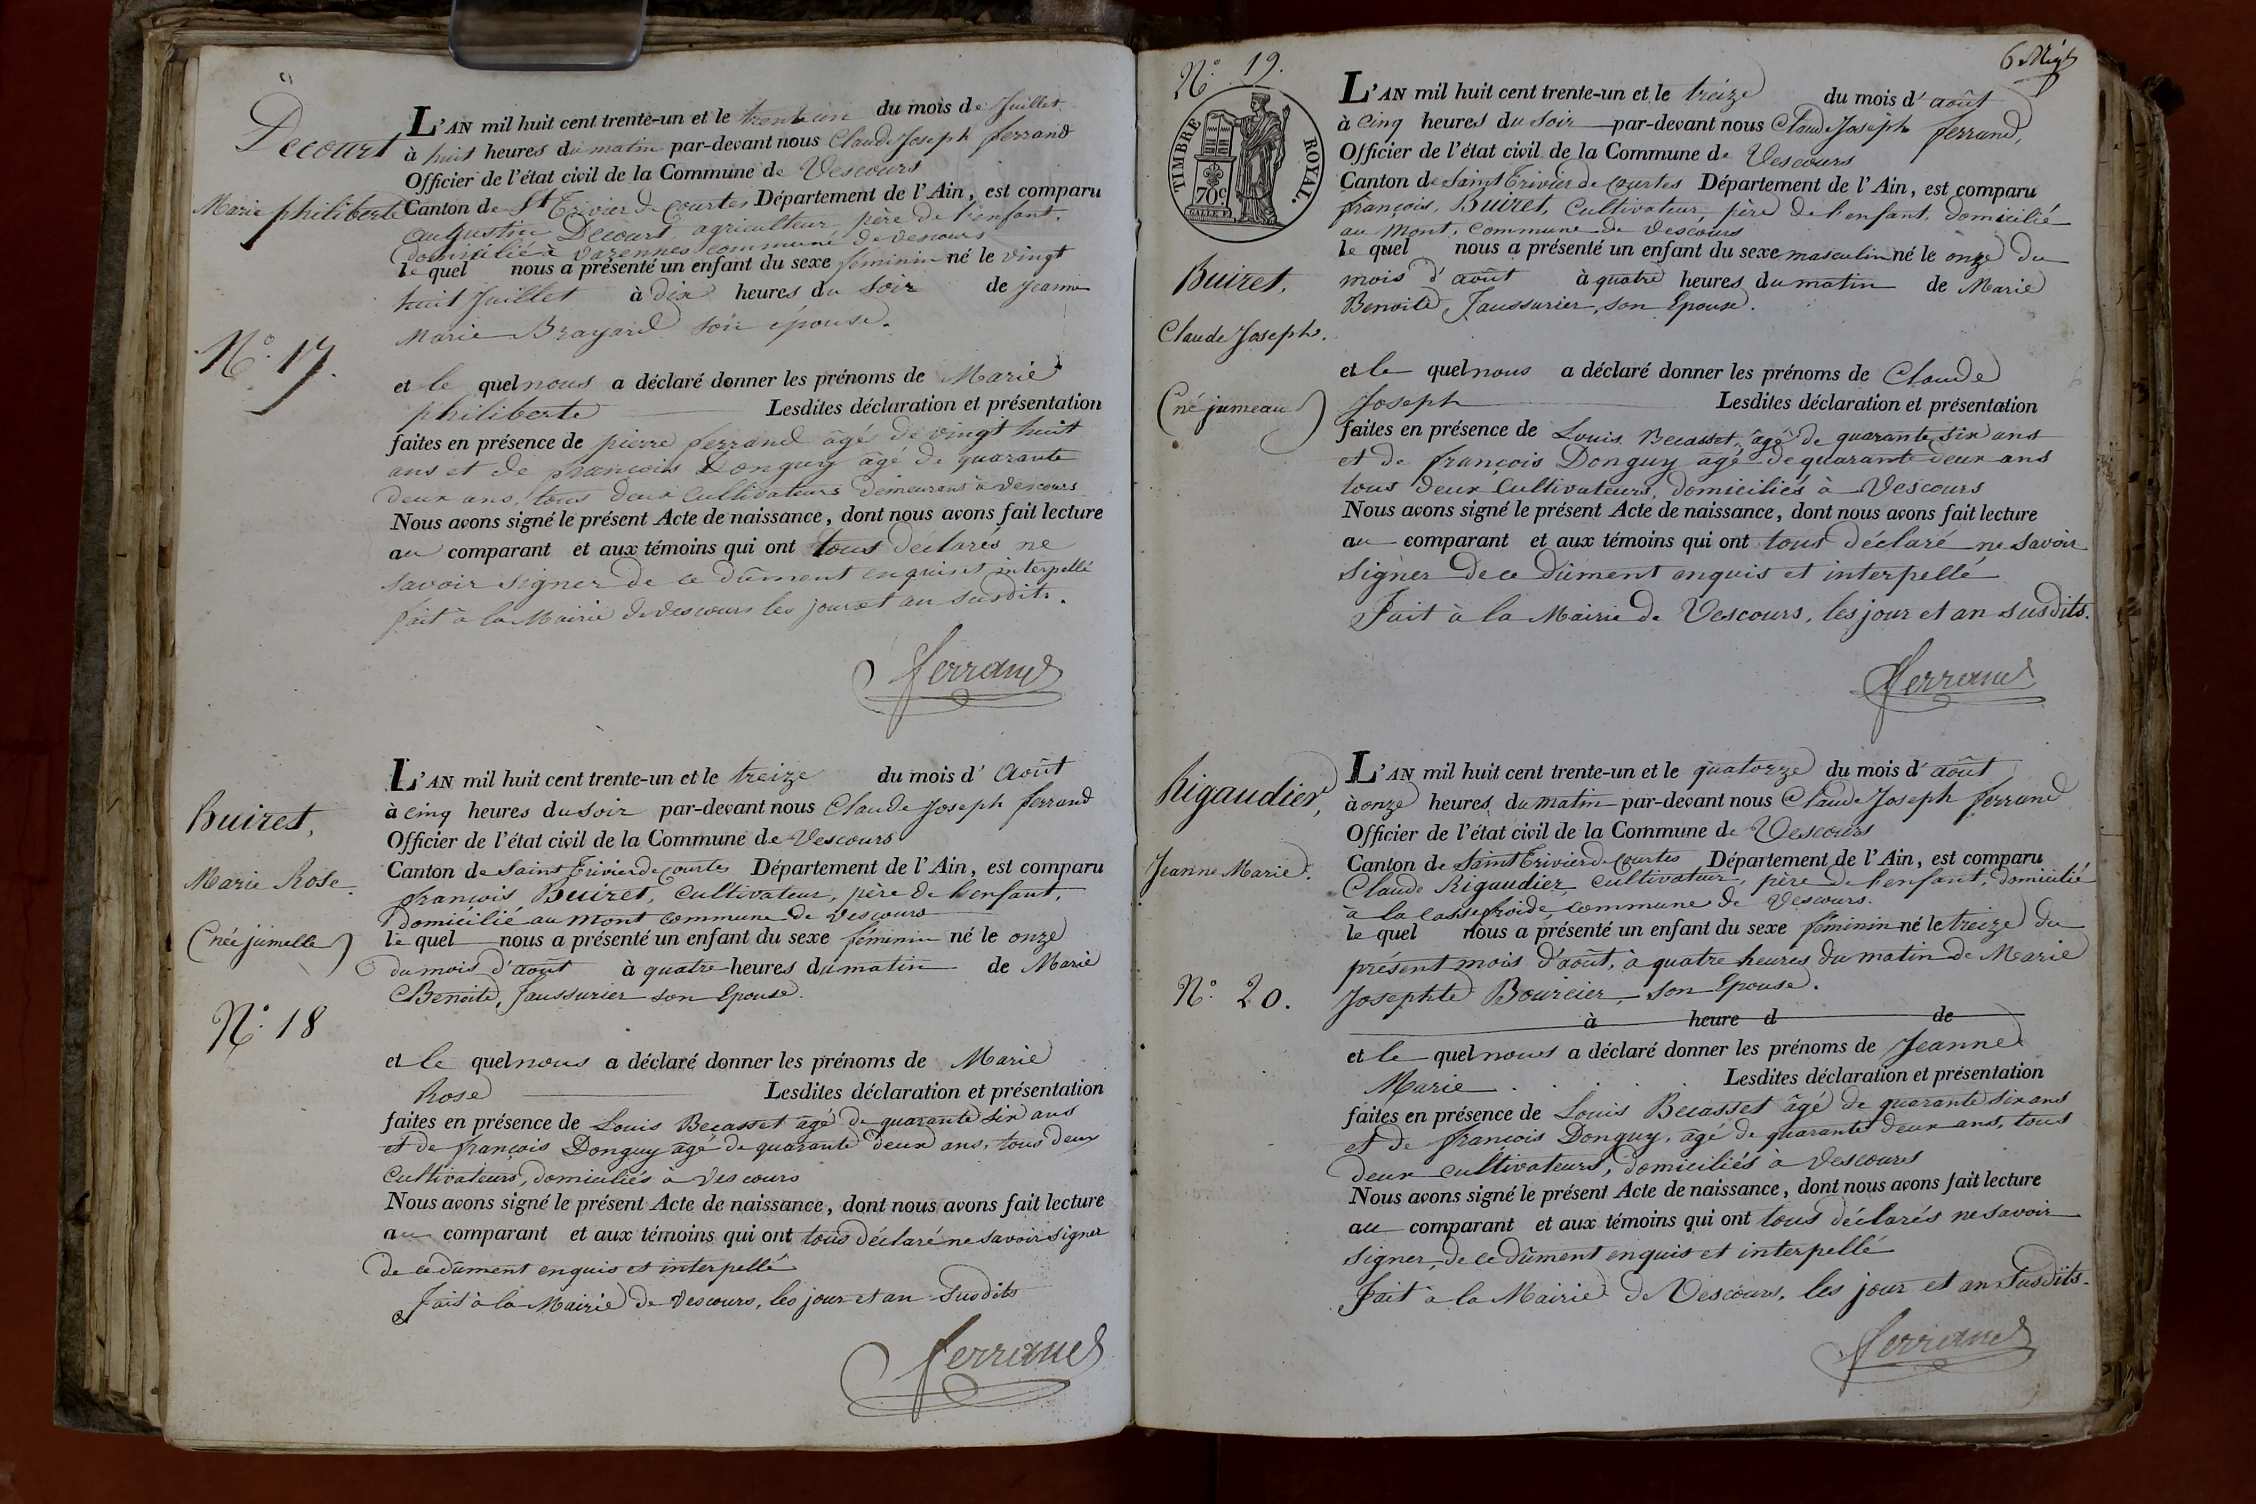 Decourt
Marie philiberte
N.° 17.
L'AN mil huit cent trente-un et le trente un du mois de Juillet
à huit heures du matin par-devant nous Claude Joseph ferrand
Officier de l'état civil de la Commune de Vescours
Canton de St Trivier de Courtes Département de l'Ain, est comparu
augustin Decourt agriculteur père de l'enfant.
domicilié à Varennes commune de Vescours
le quel nous a présenté un enfant du sexe féminin né le vingt
huit Juillet à dix heures du Soir de Jeanne
Marie Brayard son épouse.
et le quel nous a déclaré donner les prénoms de Marie
philiberte Lesdites déclaration et présentation
faites en présence de pierre ferrand âgé de vingt huit
ans et de françois Donguy âgé de quarante
deux ans, tous deux Cultivateurs demeurant à Vescours
Nous avons signé le présent Acte de naissance, dont nous avons fait lecture
au comparant et aux témoins qui ont tous déclarés ne
savoir signer de ce dûment enquint interpellé
fait à la Mairie de Vescours les jour et an susdits.
ferrand
Buiret,
Marie Rose.
(née jumelle)
N.° 18
L'AN mil huit cent trente-un et le treize du mois d'Août
à cinq heures du soir par-devant nous Claude Joseph ferrand
Officier de l'état civil de la Commune de Vescours
Canton de Saint Trivier de Courtes Département de l'Ain, est comparu
françois Buiret, Cultivateur, père de l'enfant,
domicilié au Mont commune de Vescours
le quel nous a présenté un enfant du sexe féminin né le onze
du mois d'août à quatre heures du matin de Marie
Benoite, Jaussurier son Epouse.
et le quel nous a déclaré donner les prénoms de Marie
Rose Lesdites déclaration et présentation
faites en présence de Louis Becasset âgé de quarante six ans
et de françois Donguy âgé de quarante deux ans, tous deux
Cultivateurs, domiciliés à Vescours
Nous avons signé le présent Acte de naissance, dont nous avons fait lecture
au comparant et aux témoins qui ont tous déclaré ne savoir signer
de ce dûment enquis et interpellé
fait à la Mairie de Vescours, les jour et an Susdits
ferrand
N.° 19.
TIMBRE ROYAL.
70c.
Buiret,
Claude Joseph.
(né jumeau)
L'AN mil huit cent trente-un et le treize du mois d'août
à cinq heures du soir par-devant nous Claude Joseph ferrand,
Officier de l'état civil de la Commune de Vescours
Canton de Saint Trivier de Courtes Département de l'Ain, est comparu
françois, Buiret, Cultivateur, père de l'enfant, domicilié
au Mont, Commune de Vescours
le quel nous a présenté un enfant du sexe masculin né le onze du
mois d'août à quatre heures du matin de Marie
Benoite Jaussurier, son Epouse.
et le quel nous a déclaré donner les prénoms de Claude
Joseph Lesdites déclaration et présentation
faites en présence de Louis Becasset, âgé de quarante six ans
et de françois Donguy âgé de quarante deux ans
tous deux Cultivateurs, domiciliés à Vescours
Nous avons signé le présent Acte de naissance, dont nous avons fait lecture
au comparant et aux témoins qui ont tous déclaré ne savoir
Signer de ce dûment enquis et interpellé
Fait à la Mairie de Vescours, les jour et an susdits.
ferrand
Rigaudier,
Jeanne Marie.
N.° 20.
L'AN mil huit cent trente-un et le quatorze du mois d'août
à onze heures du matin par-devant nous Claude Joseph ferrand
Officier de l'état civil de la Commune de Vescours
Canton de Saint Trivier de Courtes Département de l'Ain, est comparu
Claude Rigaudier cultivateur, père de l'enfant, domicilié
à la casse froide, commune de Vescours.
le quel nous a présenté un enfant du sexe féminin né le treize du
présent mois d'août, à quatre heures du matin de Marie
Josephte Bourcier, son Epouse.
à heure d de
et le quel nous a déclaré donner les prénoms de Jeanne
Marie Lesdites déclaration et présentation
faites en présence de Louis Becasset âgé de quarante six ans
et de françois Donguy, âgé de quarante deux ans, tous
deux cultivateurs, domiciliés à Vescours
Nous avons signé le présent Acte de naissance, dont nous avons fait lecture
au comparant et aux témoins qui ont tous déclarés ne savoir
signer, de ce dûment enquis et interpellé
fait à la Mairie de Vescours, les jour et an Susdits.
ferrand